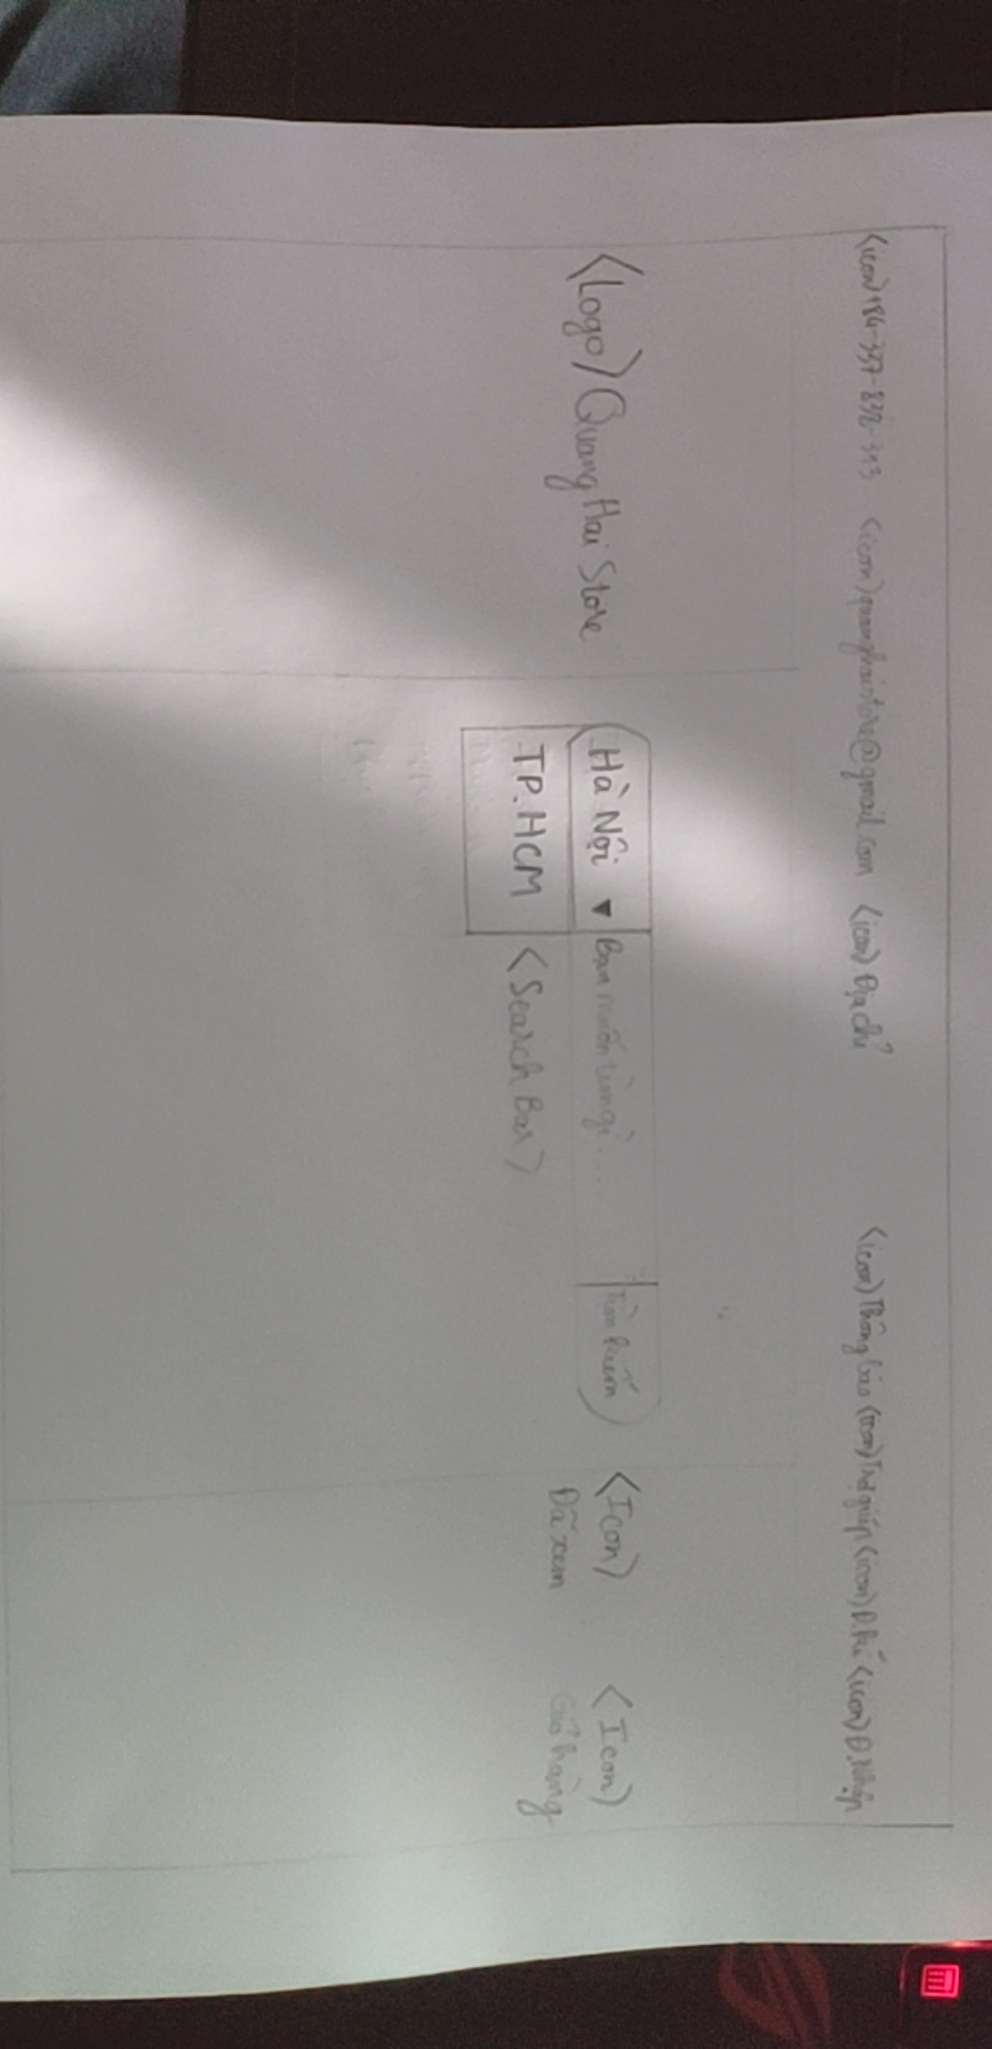 <icon) +84-337-832-313 <icon) quanghaistore@gmail.com <icon) Địa chỉ <icon) Thông báo <icon) Trợ giúp <icon) Đ.kí <icon) Đ.Nhập
<Logo) Quang Hai Store Hà Nội ▼ Bạn muốn tìm gì.... Tìm kiếm <Icon) <Icon)
Đã xem Giỏ hàng
TP.HCM <Search Bar>